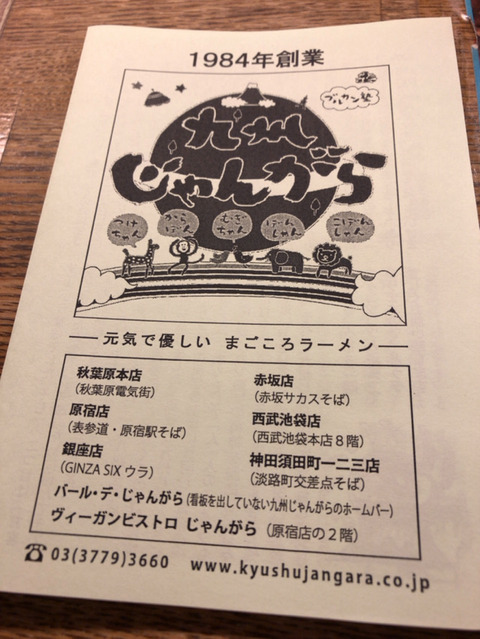 1984年創業
ブルカン塾
九州
じゃんがら
つけちゃん
からぼん
むぎちゃん
ぼんしゃん
こぼんしゃん
元気で優しい まごころラーメン
秋葉原本店
(秋葉原電気街)
原宿店
(表参道・原宿駅そば)
銀座店
(GINZA SIX ウラ)
赤坂店
(赤坂サカスそば)
西武池袋店
(西武池袋本店8階)
神田須田町一二三店
(淡路町交差点そば)
バール・デ・じゃんがら(看板を出していない九州じゃんがらのホームバー)
ヴィーガンビストロ じゃんがら(原宿店の2階)
☎ 03(3779)3660 www.kyushujangara.co.jp